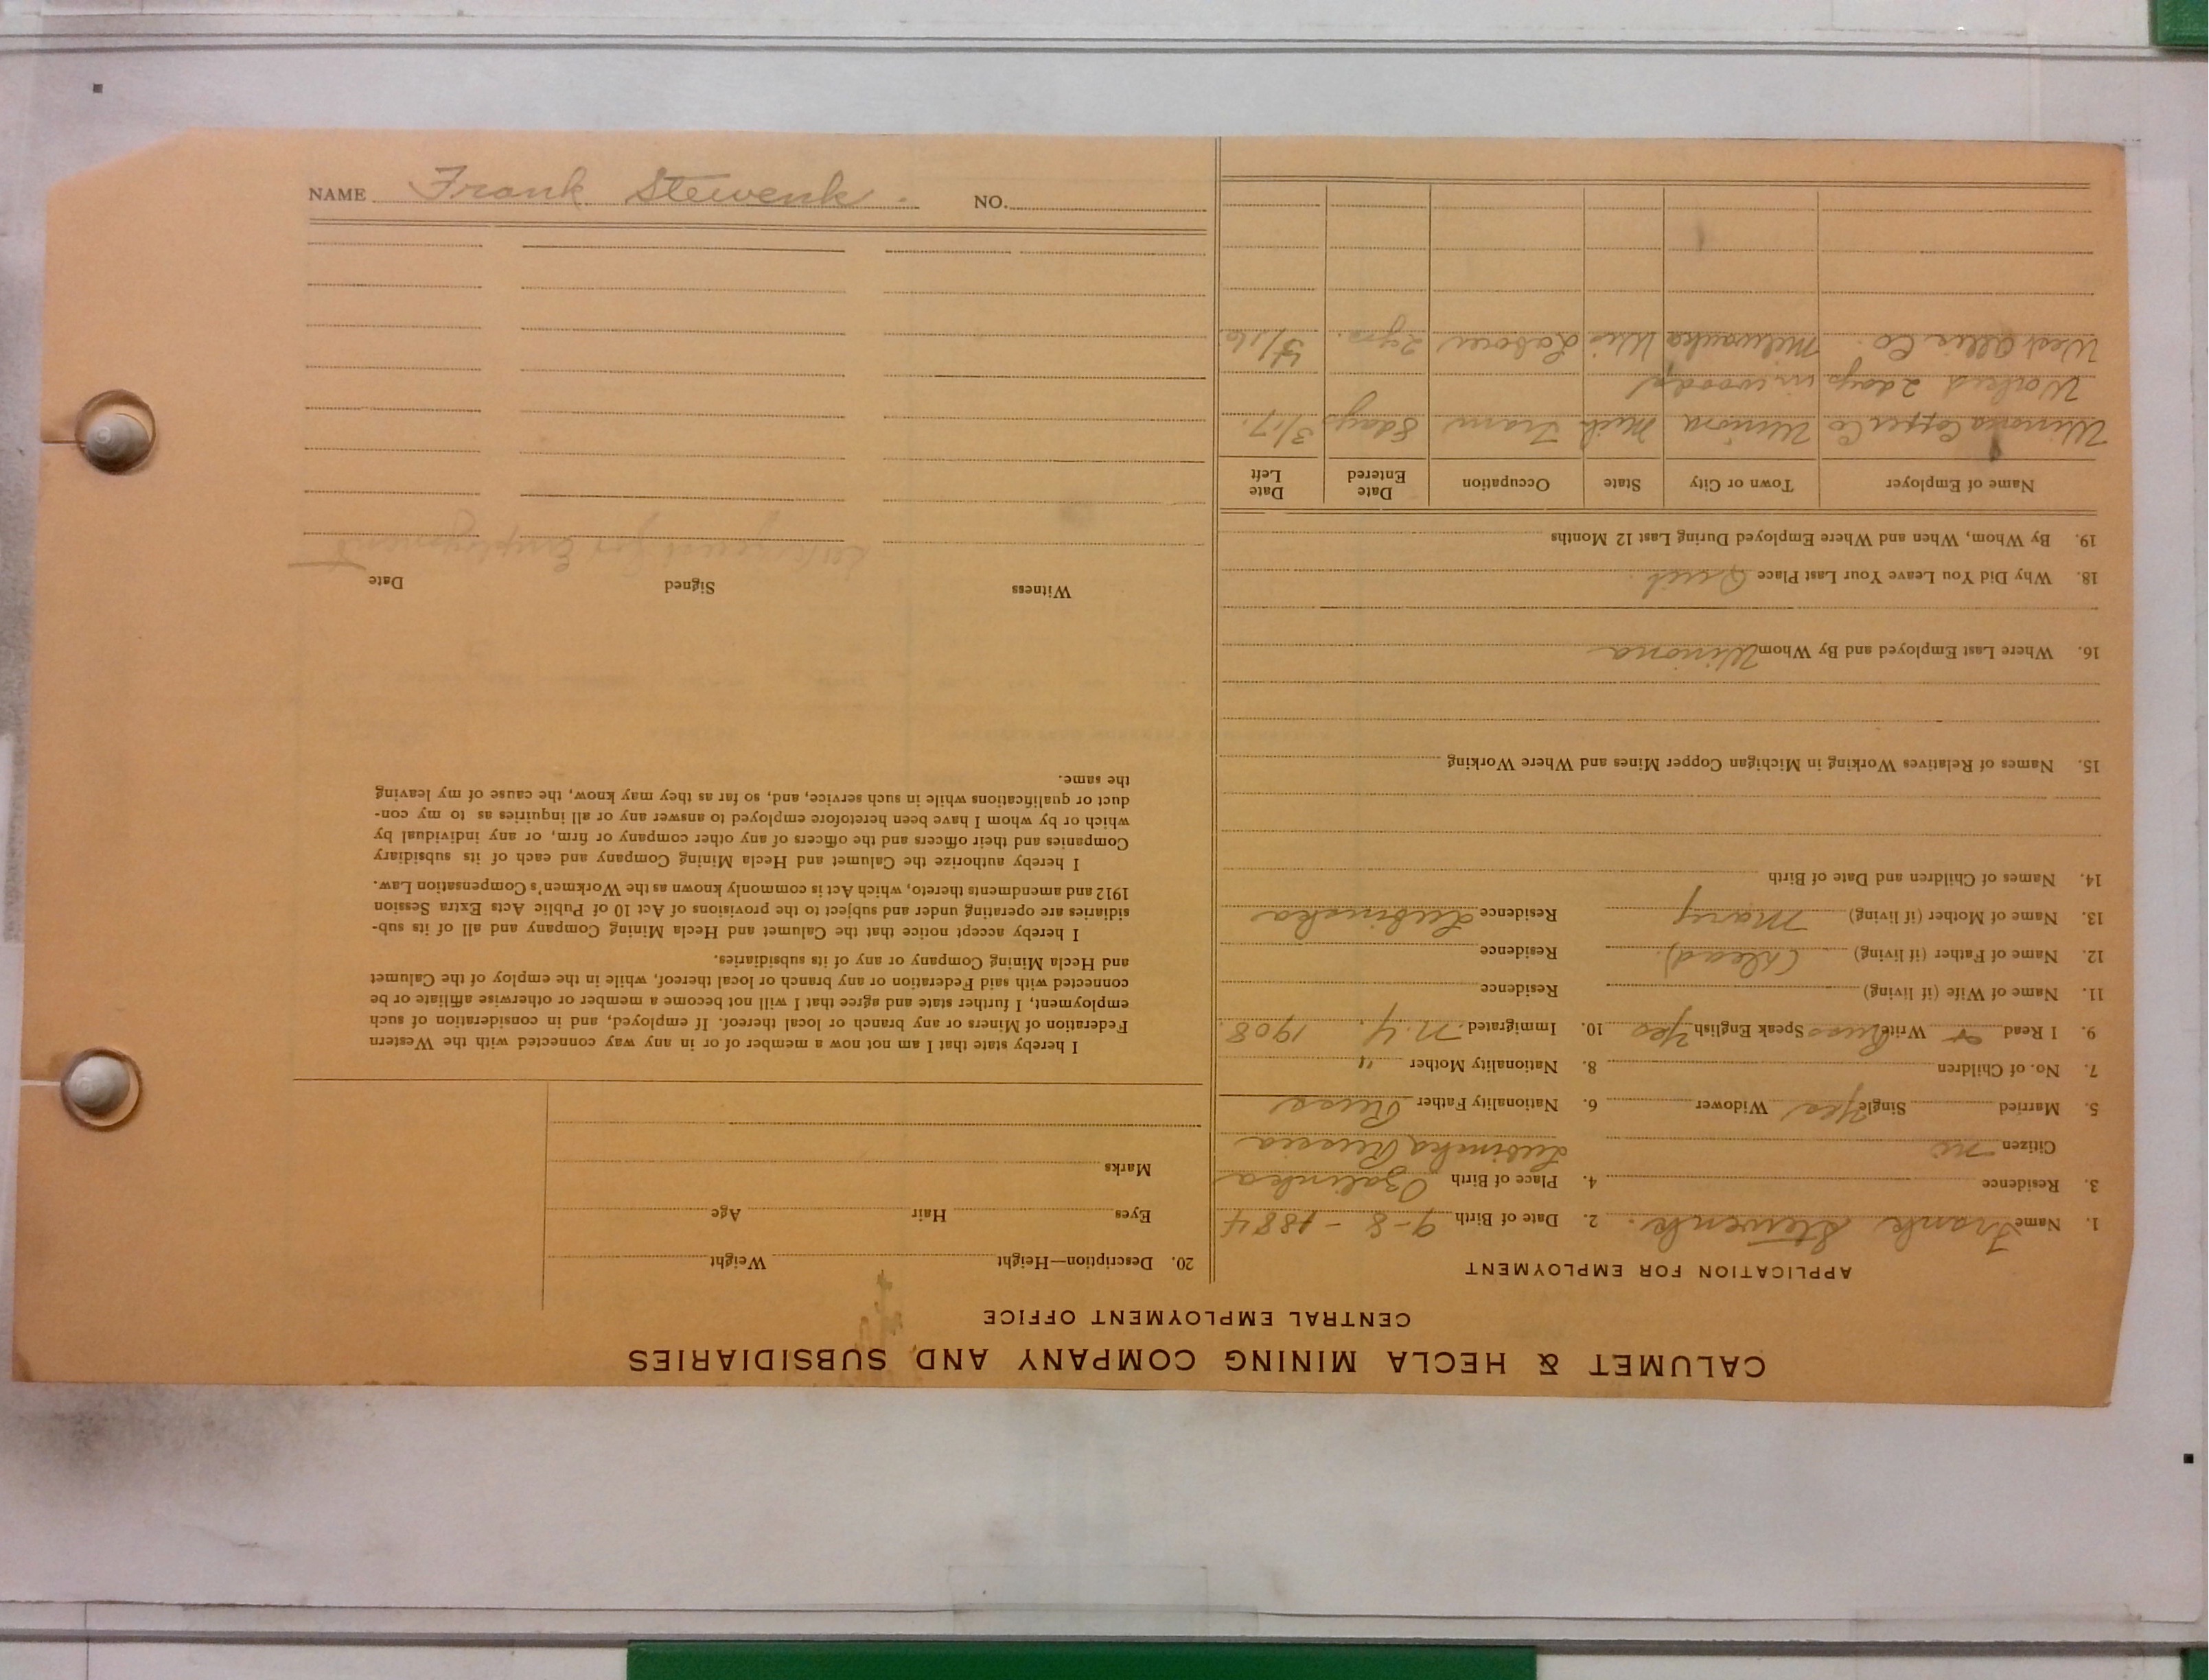 NAME Frank Stewenk. NO.
CALUMET & HECLA MINING COMPANY AND SUBSIDIARIES
CENTRAL EMPLOYMENT OFFICE
APPLICATION FOR EMPLOYMENT
1. Name Frank Stewenk. 2. Date of Birth 9-8-1884
3. Residence 4. Place of Birth
Citizen no Russia
5. Married Single Yes Widower 6. Nationality Father Russ
7. No. of Children 8. Nationality Mother "
9. I Read + Write Russ Speak English Yes 10. Immigrated N.Y. 1908.
11. Name of Wife (if living) Residence
12. Name of Father (if living) (dead) Residence
13. Name of Mother (if living) Mary Residence
14. Names of Children and Date of Birth
15. Names of Relatives Working in Michigan Copper Mines and Where Working
16. Where Last Employed and By Whom Winona
18. Why Did You Leave Your Last Place Quit.
19. By Whom, When and Where Employed During Last 12 Months
Name of Employer Town or City State Occupation Date Entered Date Left
Winona Copper Co Winona Mich Tram 8 days 3/17.
Worked 2 days in woods
West Allis Co. Milwauka Wis Laborer 2 yrs. 5/16
20. Description—Height Weight
Eyes Hair Age
Marks
I hereby state that I am not now a member of or in any way connected with the Western
Federation of Miners or any branch or local thereof. If employed, and in consideration of such
employment, I further state and agree that I will not become a member or otherwise affiliate or be
connected with said Federation or any branch or local thereof, while in the employ of the Calumet
and Hecla Mining Company or any of its subsidiaries.
I hereby accept notice that the Calumet and Hecla Mining Company and all of its sub-
sidiaries are operating under and subject to the provisions of Act 10 of Public Acts Extra Session
1912 and amendments thereto, which Act is commonly known as the Workmen's Compensation Law.
I hereby authorize the Calumet and Hecla Mining Company and each of its subsidiary
Companies and their officers and the officers of any other company or firm, or any individual by
which or by whom I have been heretofore employed to answer any or all inquiries as to my con-
duct or qualifications while in such service, and, so far as they may know, the cause of my leaving
the same.
Witness Signed Date
for Employment